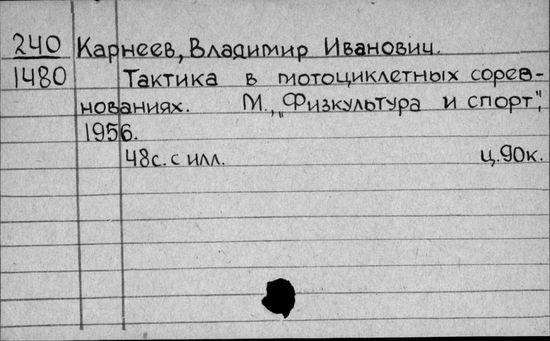 240 Карнеев, Владимир Иванович.
1480 Тактика в мотоциклетных сорев-
нованиях. М., „Физкультура и спорт",
1956.
48с. с илл. ц. 90к.